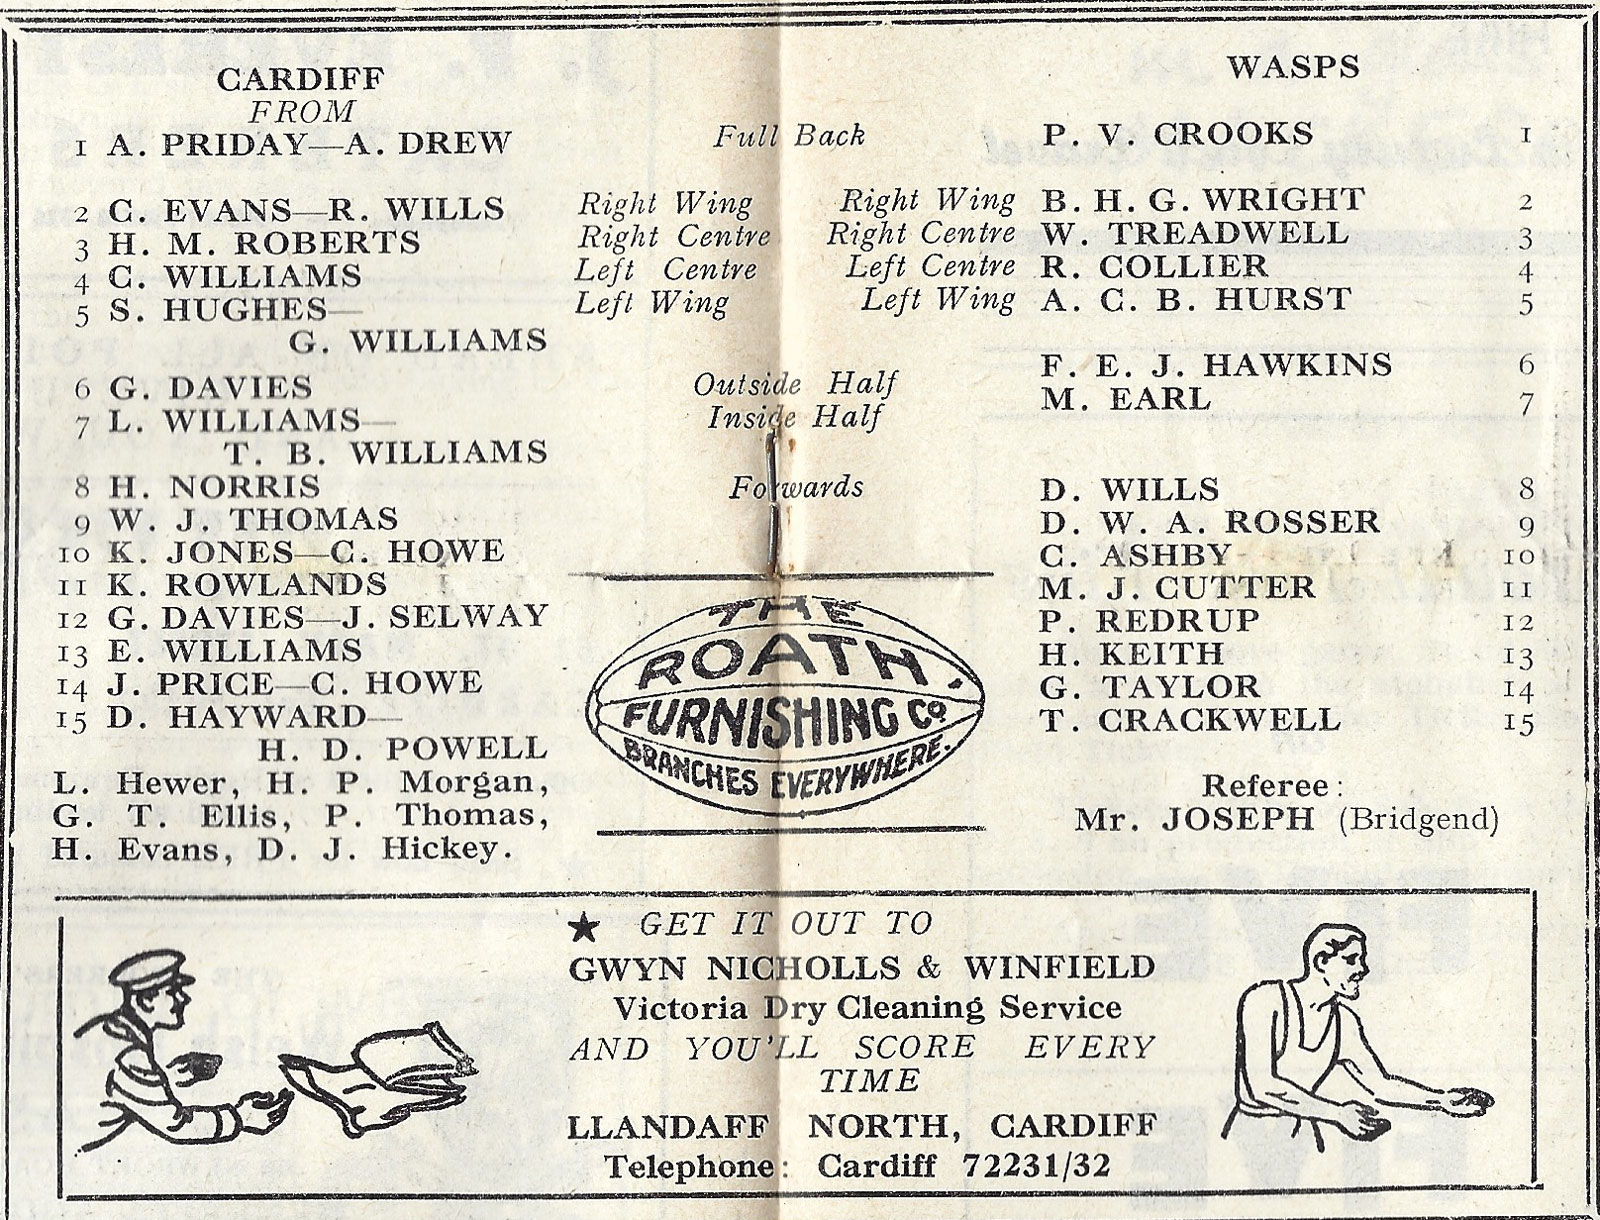 CARDIFF
WASPS
FROM
1 A. PRIDAY—A. DREW Full Back P. V. CROOKS 1
2 C. EVANS—R. WILLS Right Wing Right Wing B. H. G. WRIGHT 2
3 H. M. ROBERTS Right Centre Right Centre W. TREADWELL 3
4 C. WILLIAMS Left Centre Left Centre R. COLLIER 4
5 S. HUGHES— Left Wing Left Wing A. C. B. HURST 5
G. WILLIAMS
6 G. DAVIES Outside Half F. E. J. HAWKINS 6
7 L. WILLIAMS— Inside Half M. EARL 7
T. B. WILLIAMS
8 H. NORRIS Forwards D. WILLS 8
9 W. J. THOMAS D. W. A. ROSSER 9
10 K. JONES—C. HOWE C. ASHBY 10
11 K. ROWLANDS M. J. CUTTER 11
12 G. DAVIES—J. SELWAY P. REDRUP 12
13 E. WILLIAMS H. KEITH 13
14 J. PRICE—C. HOWE G. TAYLOR 14
15 D. HAYWARD— T. CRACKWELL 15
H. D. POWELL
L. Hewer, H. P. Morgan,
G. T. Ellis, P. Thomas,
H. Evans, D. J. Hickey.
THE
ROATH
FURNISHING Co.
BRANCHES EVERYWHERE.
Referee:
Mr. JOSEPH (Bridgend)
★ GET IT OUT TO
GWYN NICHOLLS & WINFIELD
Victoria Dry Cleaning Service
AND YOU'LL SCORE EVERY
TIME
LLANDAFF NORTH, CARDIFF
Telephone: Cardiff 72231/32